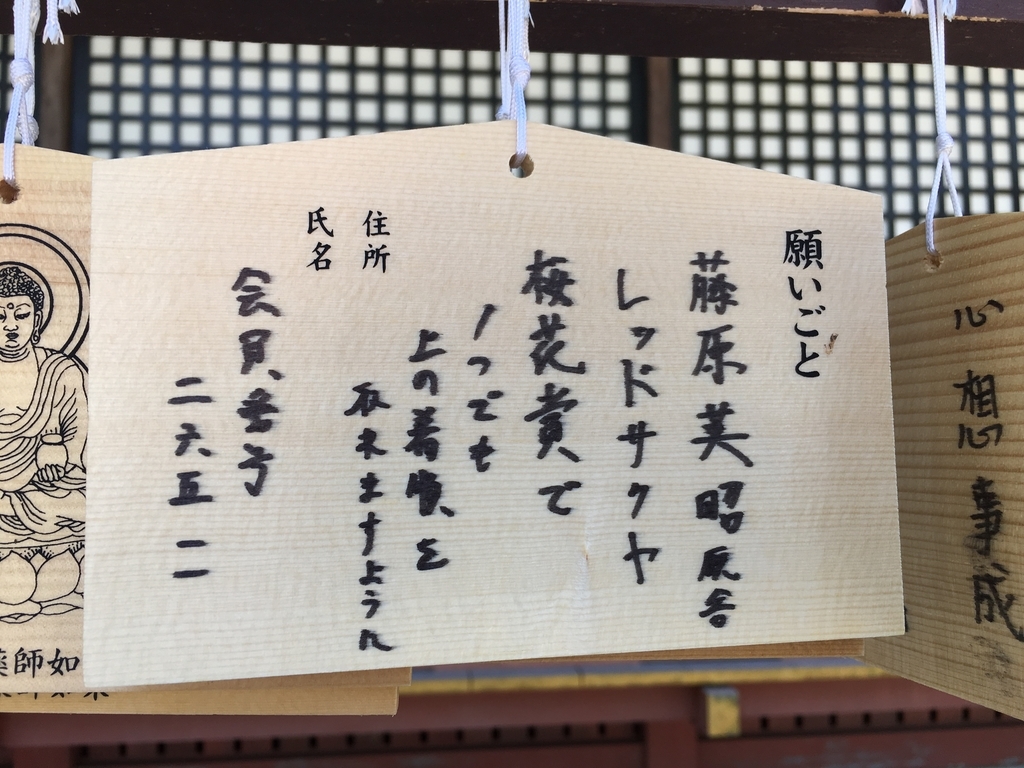 願いごと
藤原英昭厩舎
レッドサクヤ
桜花賞で
1つでも
上の着順を
取れますように
住所
氏名
会員番号
二六五一
心想事成
薬師如